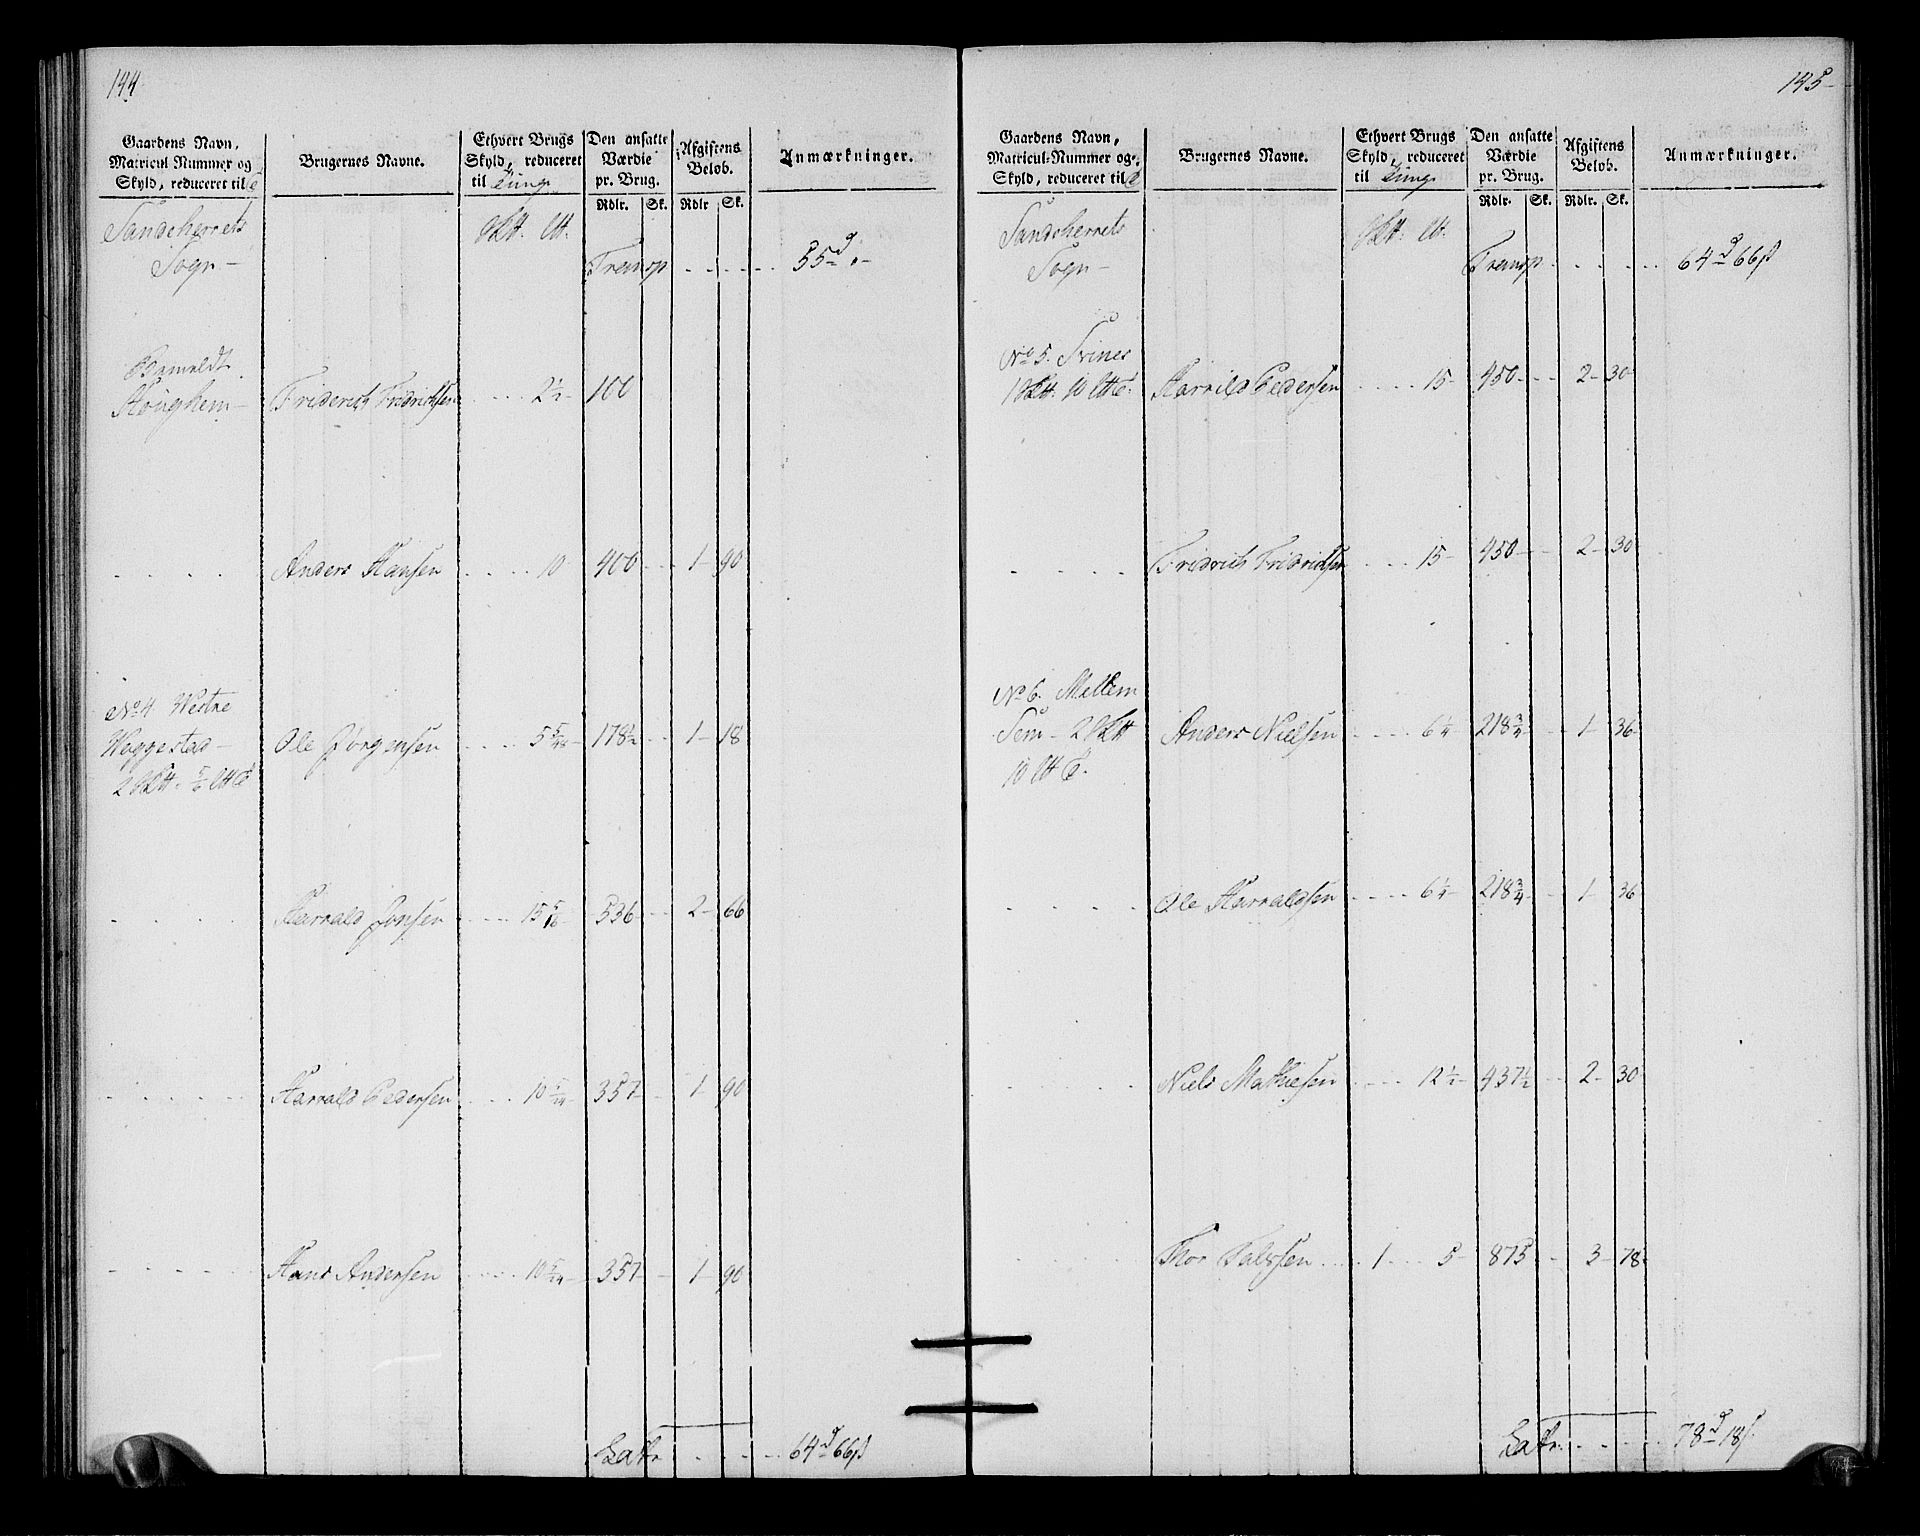 144
Gaardens Navn,
Matricul Nummer og
Skyld, reduceret til
Brugernes Navne.
Ethvert Brugs
Skyld, reduceret
til Tunge
Den ansatte
Værdie
pr. Brug.
Rdlr. Sk.
Afgiftens
Beløb.
Rdlr Sk.
Anmærkninger.
Sandeherrets
Sogn
Transp. 55
Bemeldt
Friderich Fridrichsen 2½ 100
Anders Hansen 10 400 1 90
No 4 Westre
Weggestad
Ole Jørgensen 5 5/48 178½ 1 18
Harrald Jonsen 15 5/16 536 2 66
Harrald Pedersen 10 5/24 357 1 90
Hans Andersen 10 5/24 357 1 90
Latr. 64 66
145
Gaardens Navn,
Matricul-Nummer og
Skyld, reduceret til
Brugernes Navne.
Ethvert Brugs
Skyld, reduceret
til Tunge
Den ansatte
Værdie
pr. Brug.
Rdlr. Sk.
Afgiftens
Beløb.
Rdlr. Sk.
Anmærkninger.
Sandeherrets
Sogn
Transp. 64 66
No 5. Svines
Harrild Pedersen 15 450 2 30
Fridrich Fridrichsen 15 450 2 30
No 6. Mellem
Sem
Anders Nielsen 6¼ 218¾ 1 36
Ole Harraldsen 6¼ 218¾ 1 36
Niels Mathiesen 12½ 437½ 2 30
Thor 1 5 875 3 78
Latr. 78 18